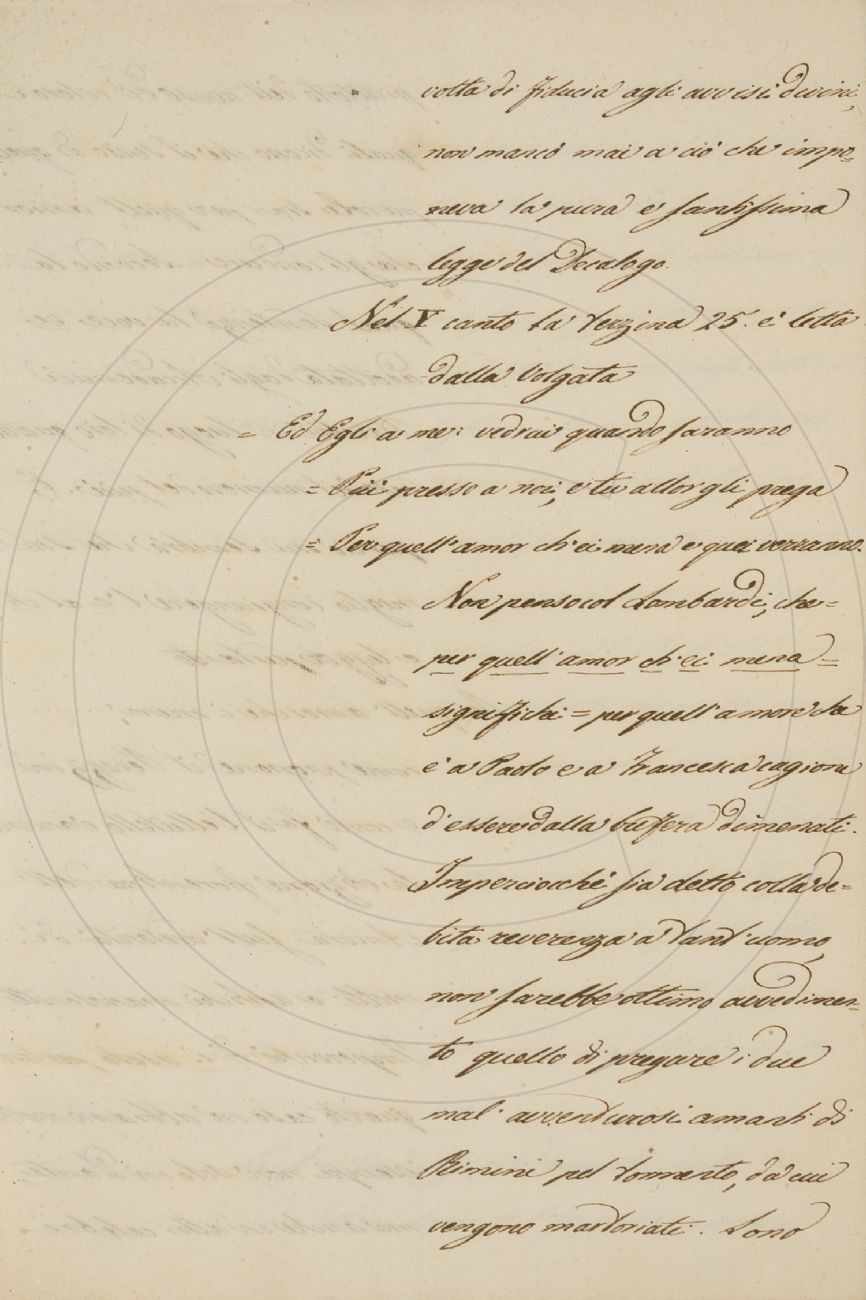 volta di fiducia agli avvisi divini,
non mancò mai a ciò che impo=
neva la pura e santissima
legge del Decalogo.
Nel V canto la terzina 25. è letta
dalla Volgata
= Ed Egli a me: vedrai quando saranno
= Più presso a noi, e tu allor gli prega
= Per quell'amor ch'ei mena e quei verranno.
Non penso col Lombardi, che=
per quell'amor ch'ei mena=
significhi = per quell'amore che
è a Paolo e a Francesca cagione
d'essere dalla bufera dimenati.
Imperciocchè sia detto colla de=
bita reverenza a tant'uomo,
non sarebbe ottimo avvedimen=
to quello di pregare i due
mal'avventurosi amanti di
Rimini pel tormento, da cui
vengono martoriati. Sono